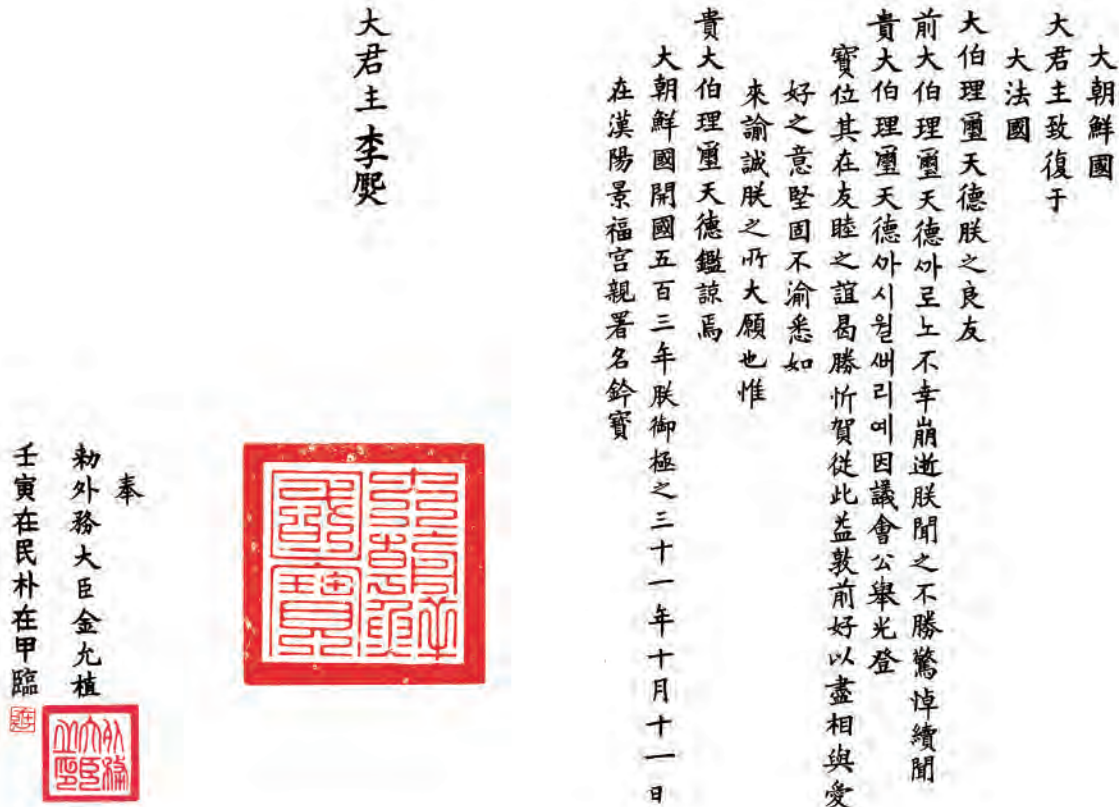 大朝鮮國
大君主致復于
大法國
大伯理璽天德朕之良友
前大伯理璽天德ᄭᅡ로노不幸崩逝朕聞之不勝驚悼續聞
貴大伯理璽天德ᄭᅡ시월ᄲᅦ리예因議會公舉光登
寶位其在友睦之誼曷勝忻賀從此益敦前好以盡相與愛
好之意堅固不渝悉如
來諭誠朕之所大願也惟
貴大伯理璽天德鑑諒焉
大朝鮮國開國五百三年朕御極之三十一年十月十一日
在漢陽景福宮親署名鈐寶
大君主李㷩
大朝鮮國寶
奉
勅外務大臣金允植
外務大臣之印
壬寅在民朴在甲臨